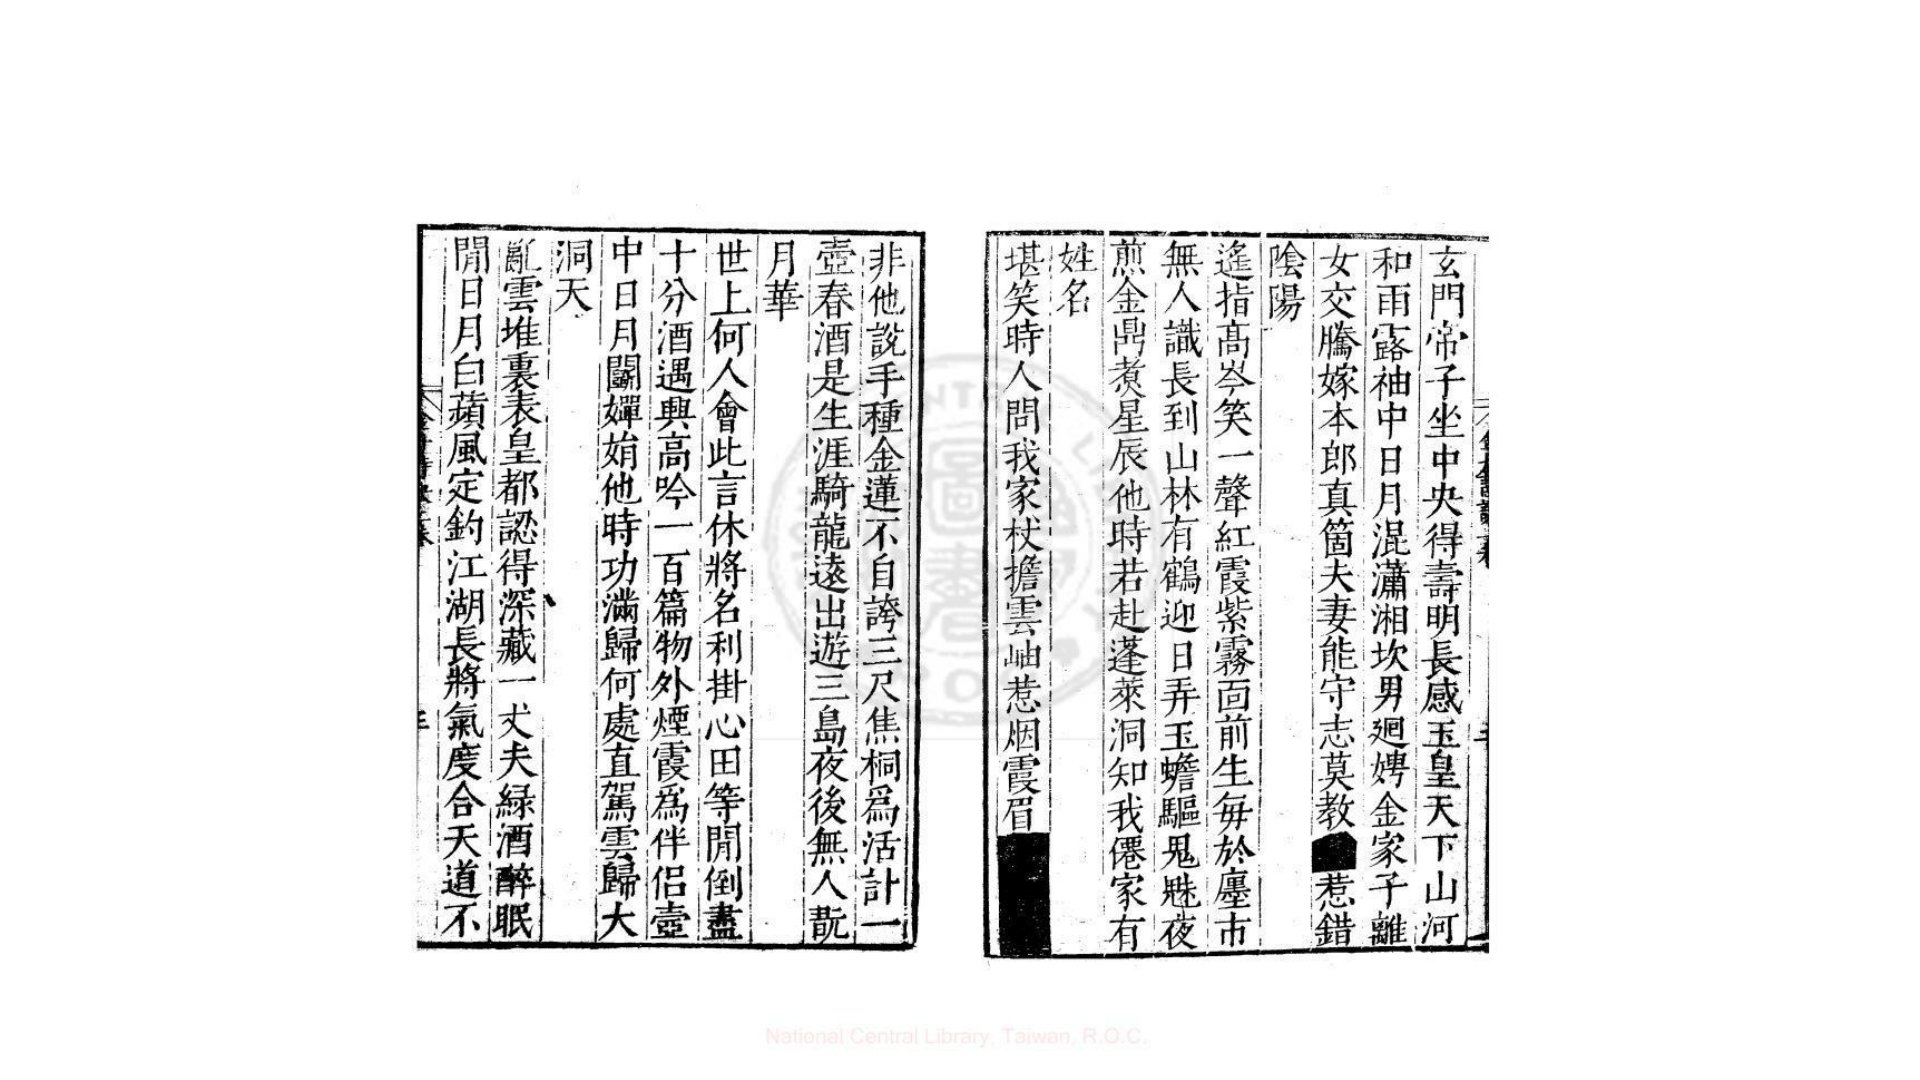 玄門帝子坐中央得壽明長感玉皇天下山河
和雨露袖中日月混瀟湘坎男迴娉金家子離
女交騰嫁本郎真箇夫妻能守志莫教惹錯
陰陽
遙指高岑笑一聲紅霞紫霧靣前生每於廛市
無人識長到山林有鶴迎日弄玉蟾驅鬼魅夜
煎金鼎煑星辰他時若赴蓬萊洞知我僊家有
姓名
堪笑時人問我家杖擔雲岫惹烟霞眉
非他說手種金蓮不自誇三尺焦桐爲活計一
壺春酒是生涯騎龍遠出遊三島夜後無人翫
月華
世上何人會此言休將名利掛心田等閒倒盡
十分酒遇興高吟一百篇物外煙霞爲伴侶壺
中日月鬭嬋娟他時功滿歸何處直駕雲歸大
洞天
亂雲堆裏表皇都認得深藏一丈夫緑酒醉眠
閒日月白蘋風定釣江湖長將氣度合天道不
National Central Library, Taiwan, R.O.C.